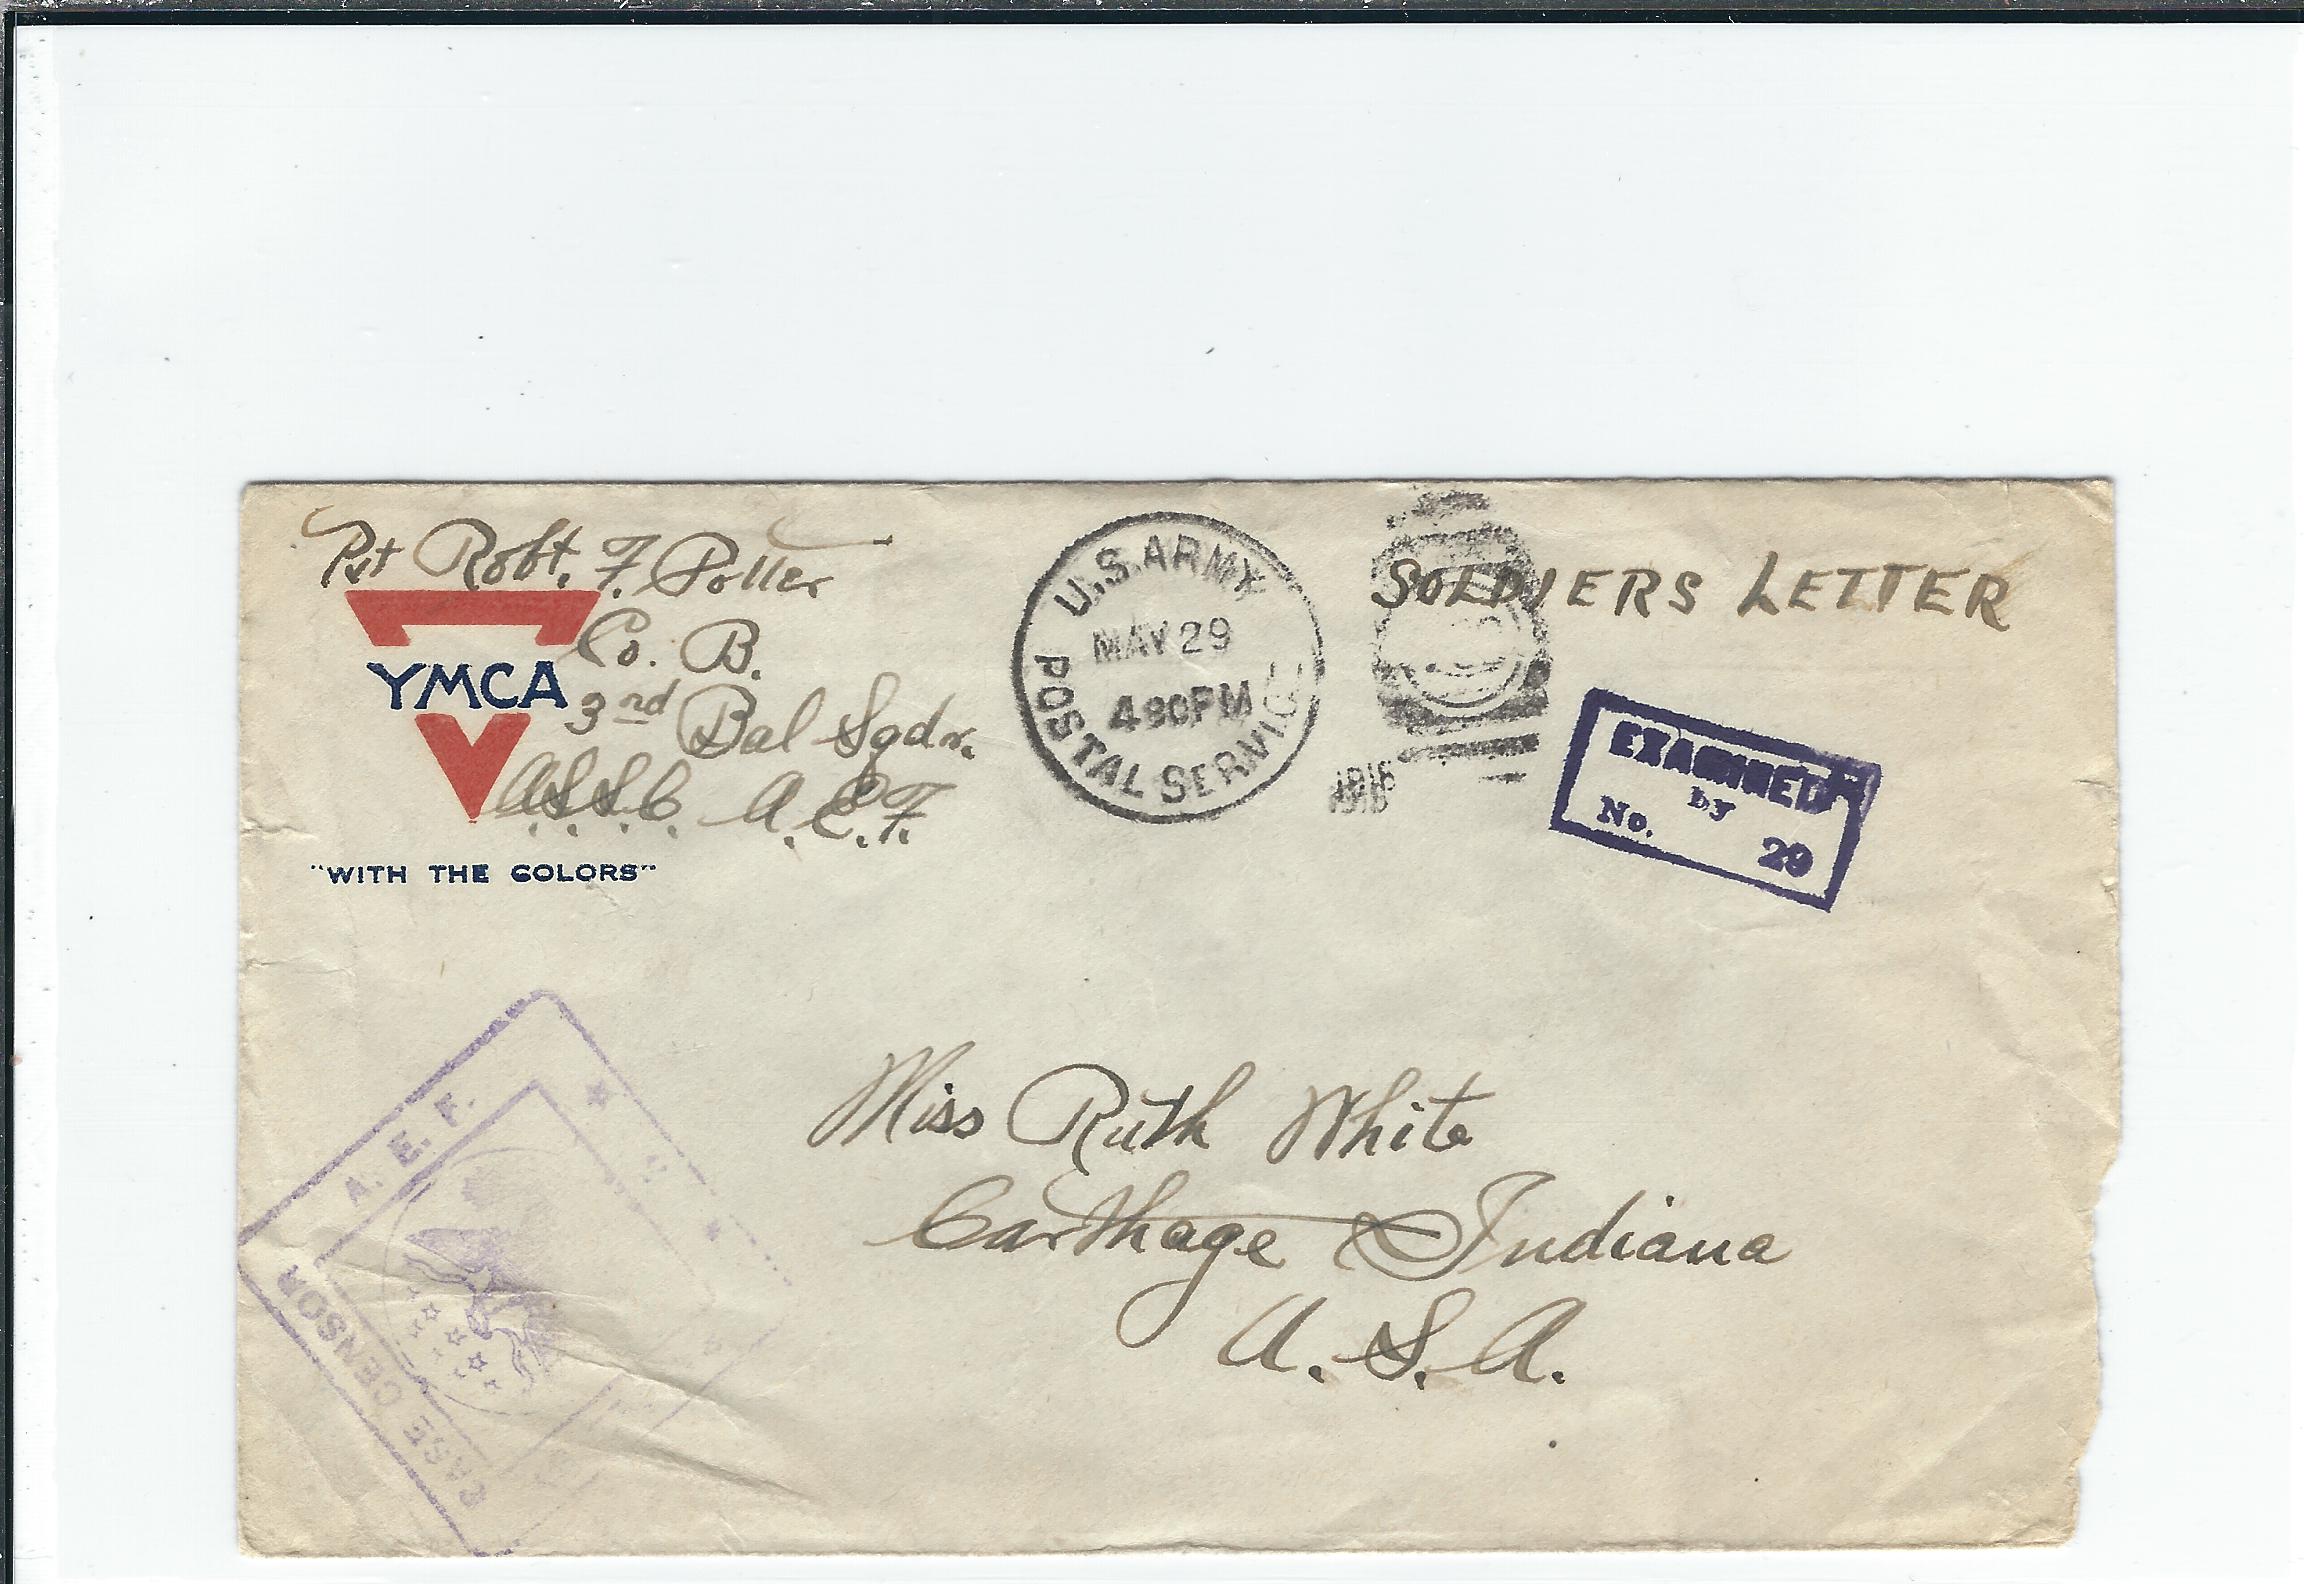 Pvt Robt. F. Potter
Co. B.
3rd Bal Sqdn.
A.S.S.C. A.E.F.
YMCA
"WITH THE COLORS"
U.S. ARMY
MAY 29
430PM
POSTAL SERVICE
1918
SOLDIERS LETTER
EXAMINED
by
No. 29
Miss Ruth White
Carthage Indiana
U.S.A.
A. E. F.
BASE CENSOR